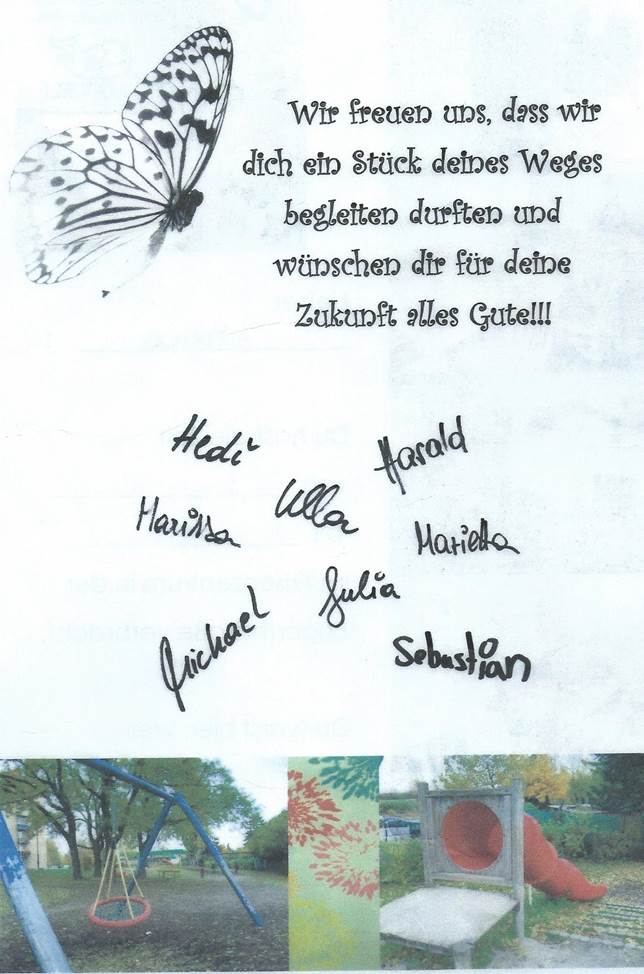 Wir freuen uns, dass wir
dich ein Stück deines Weges
begleiten durften und
wünschen dir für deine
Zukunft alles Gute!!!
Hedi
Harald
Ulla
Marissa
Marietta
Julia
Michael
Sebastian